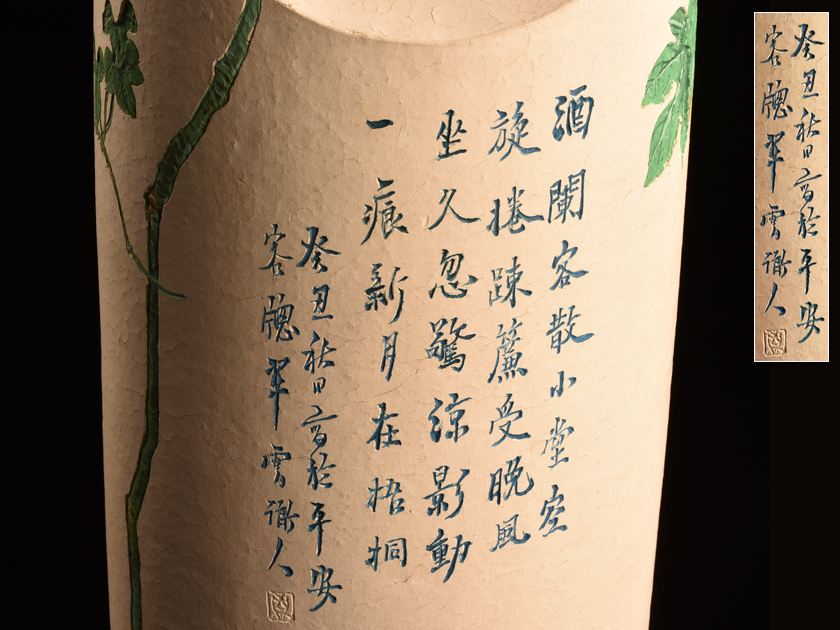 酒闌客散小堂空
旋捲疎簾受晚風
坐久忽驚涼影動
一痕新月在梧桐
癸丑秋日寫於平安
客牕翠雲人
癸丑秋日寫於平安
客牕翠雲人